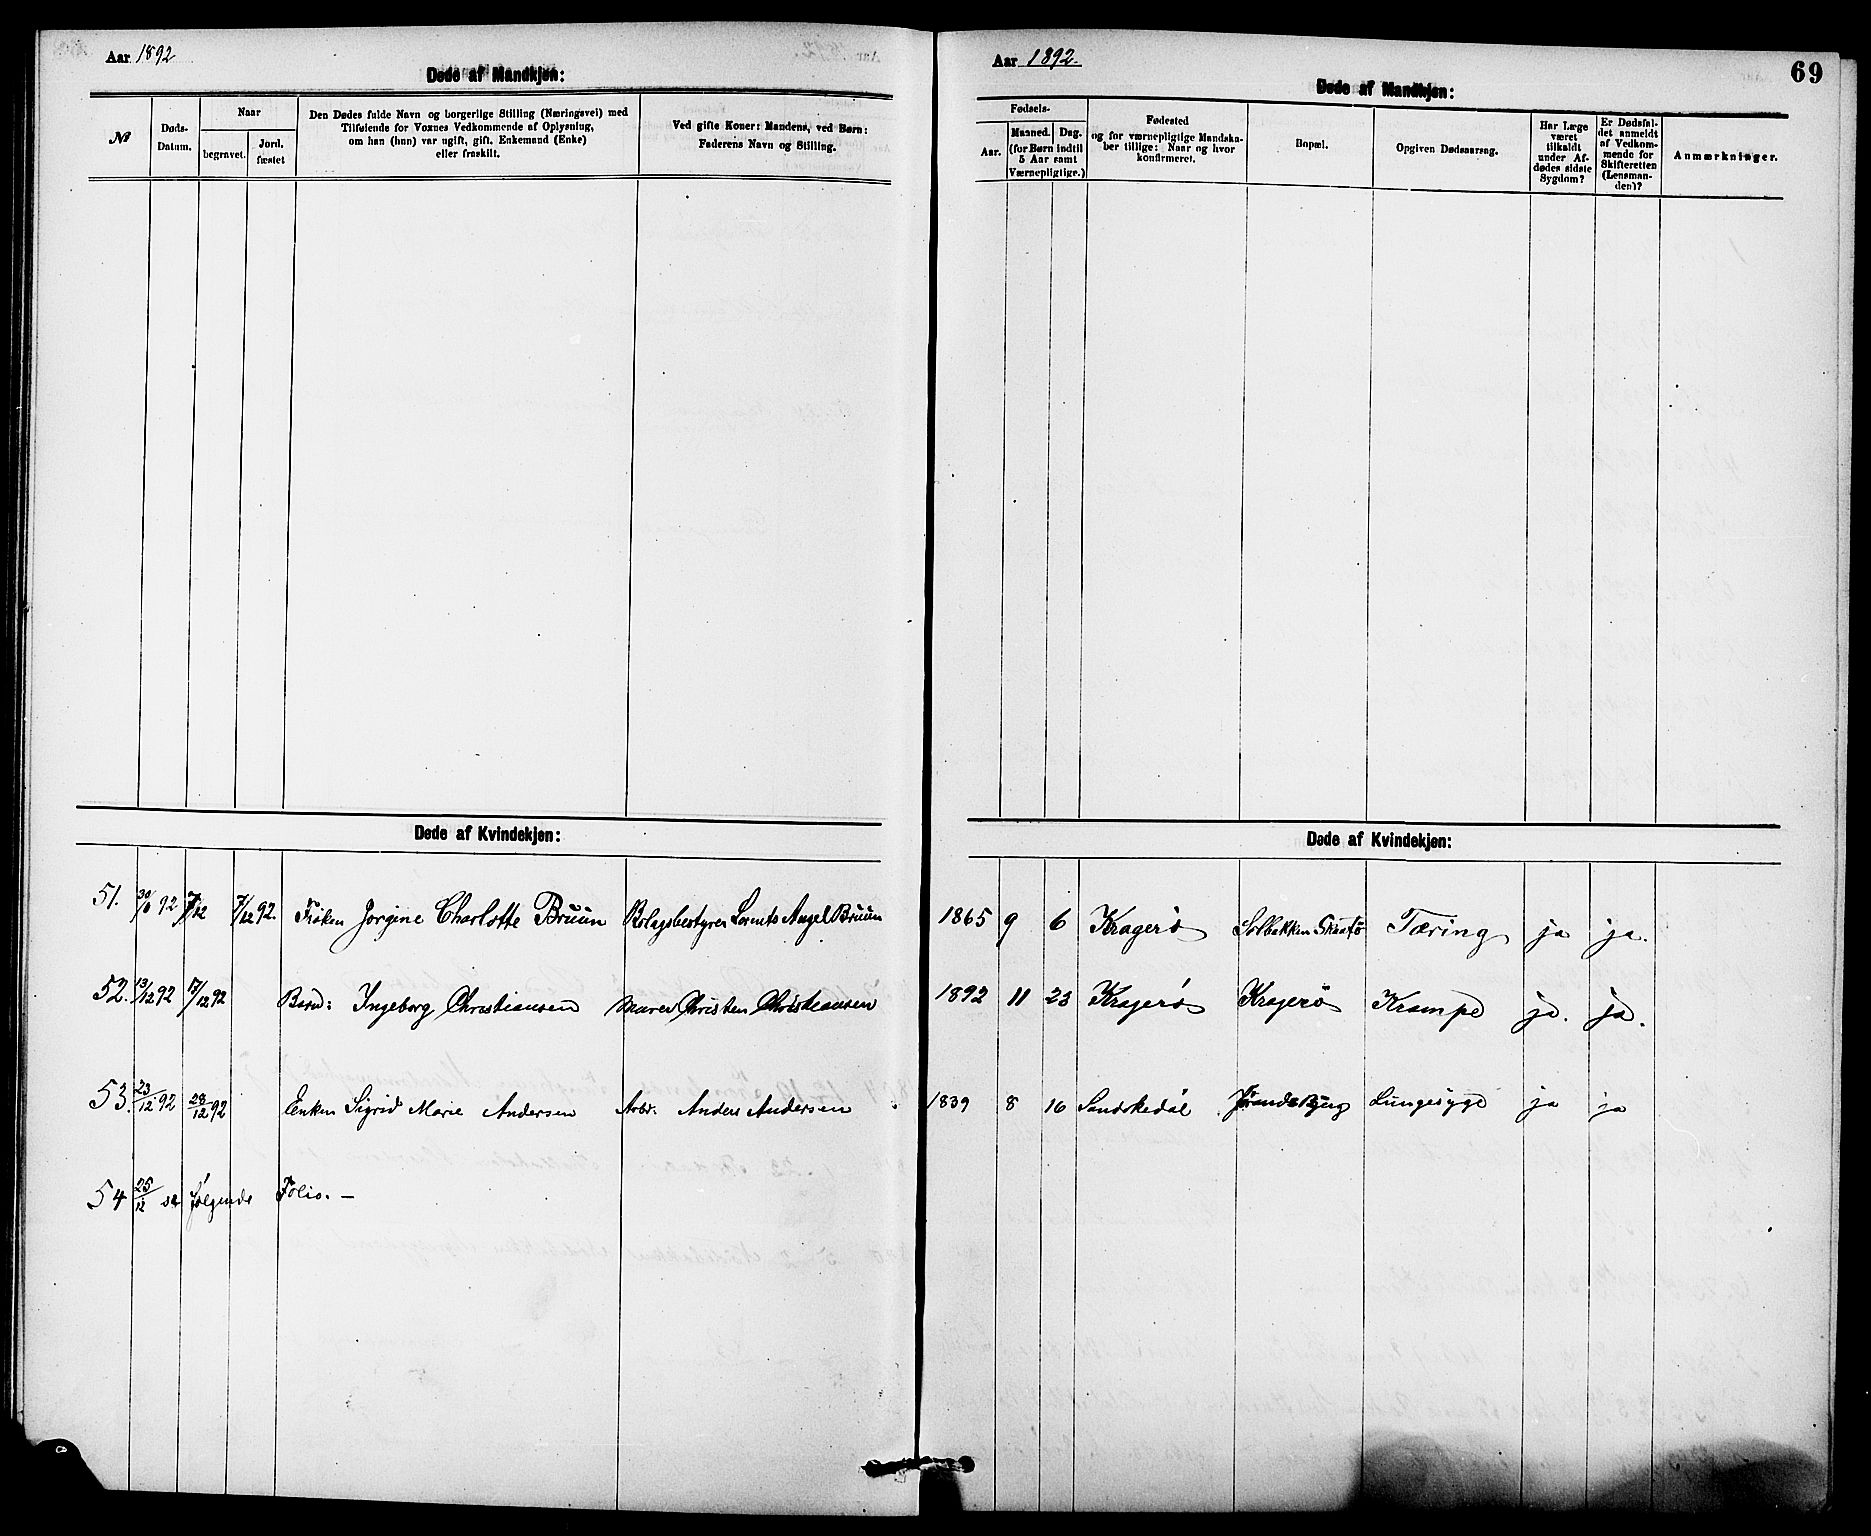 Aar 1892
Døde af Mandkjøn:
№
Døds-
Datum.
Naar
begravet.
Jord.
fæstet
Den Dødes fulde Navn og borgerlige Stilling (Næringsvei) med
Tilføiende for Voxnes Vedkommende af Oplysning,
om han (hun) var ugift, gift, Enkemand (Enke)
eller fraskilt.
Ved gifte Koner: Mandens, ved Børn:
Faderens Navn og Stilling.
Døde af Kvindekjøn:
51. 92. 7/12 7/12 92. Frøken Jorgine Charlotte Bruun Bolagsbestyrer Angel Bruun
52. 13/12 92 17/12 92 Barn: Ingeborg Christiansen Murer Christen Christiansen
53. 23/12 92 28/12 92 Enken Sigrid Marie Andersen Arbr. Anders Andersen
54 25/12 se følgende Folio. —
Aar 1892.
69
Døde af Mandkjøn:
Fødsels-
Aar.
Maaned. Dag.
(for Børn indtil
5 Aar samt
Værnepligtige.)
Fødested
og for værnepligtige Mandska-
ber tillige: Naar og hvor
konfirmeret.
Bopæl.
Opgiven Dødsaarsag.
Har Læge
været
tilkaldt
under Af-
dødes sidste
Sygdom?
Er Dødsfal-
det anmeldt
af Vedkom-
mende for
Skifteretten
(Lensman-
den)?
Anmærkninger.
Døde af Kvindekjøn:
1865 9 6 Kragerø Solbakken Skaatø Tæring ja ja.
1892 11 23 Kragerø Kragerø Krampe ja. ja.
1839 8 16 Sandøkedal Lungesyge ja ja